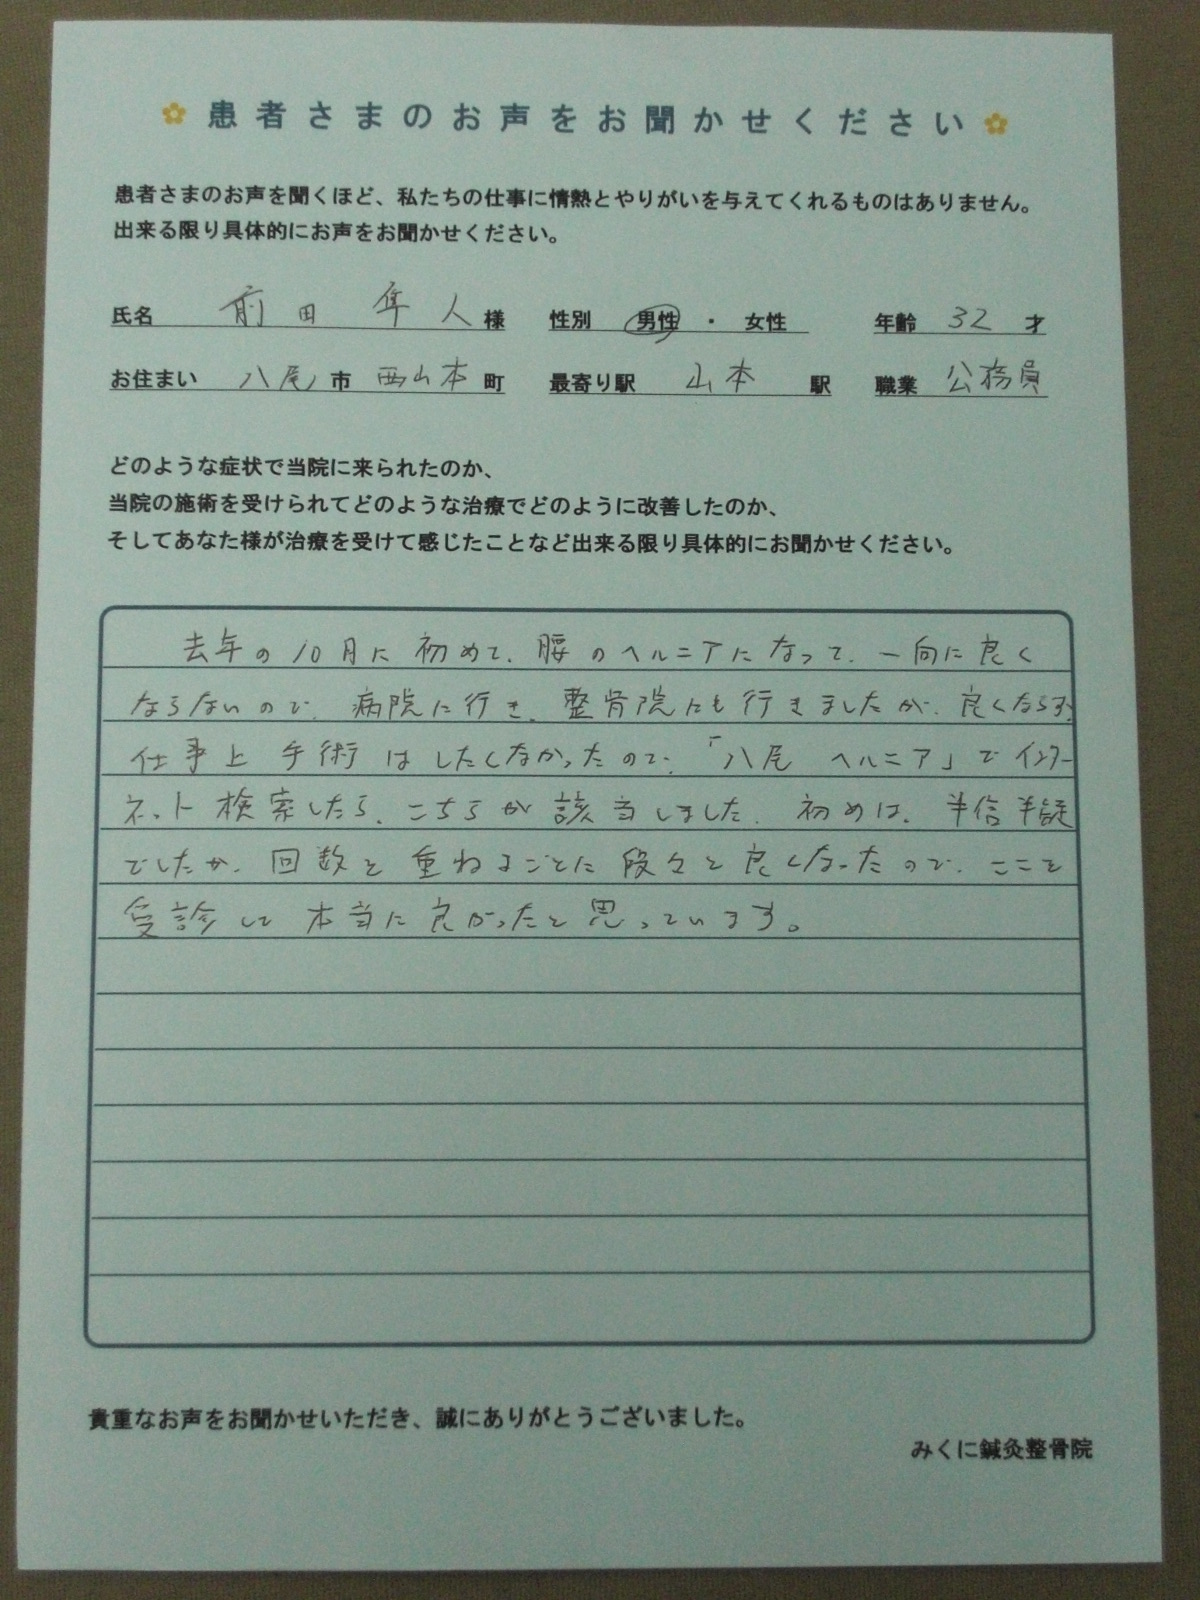 患者さまのお声をお聞かせください
患者さまのお声を聞くほど、私たちの仕事に情熱とやりがいを与えてくれるものはありません。
出来る限り具体的にお声をお聞かせください。
氏名 前田 隼人 様 性別 男性 ・ 女性 年齢 32 才
お住まい 八尾 市 西山本 町 最寄り駅 山本 駅 職業 公務員
どのような症状で当院に来られたのか、
当院の施術を受けられてどのような治療でどのように改善したのか、
そしてあなた様が治療を受けて感じたことなど出来る限り具体的にお聞かせください。
去年の10月に初めて、腰のヘルニアになって、一向に良く
ならないので、病院に行き、整骨院にも行きましたが、良くならず、
仕事上 手術はしたくなかったので、「八尾 ヘルニア」でインター
ネット検索したら、こちらが該当しました。初めは、半信半疑
でしたが、回数を重ねるごとに段々と良くなったので、ここを
受診して本当に良かったと思っています。
貴重なお声をお聞かせいただき、誠にありがとうございました。
みくに鍼灸整骨院